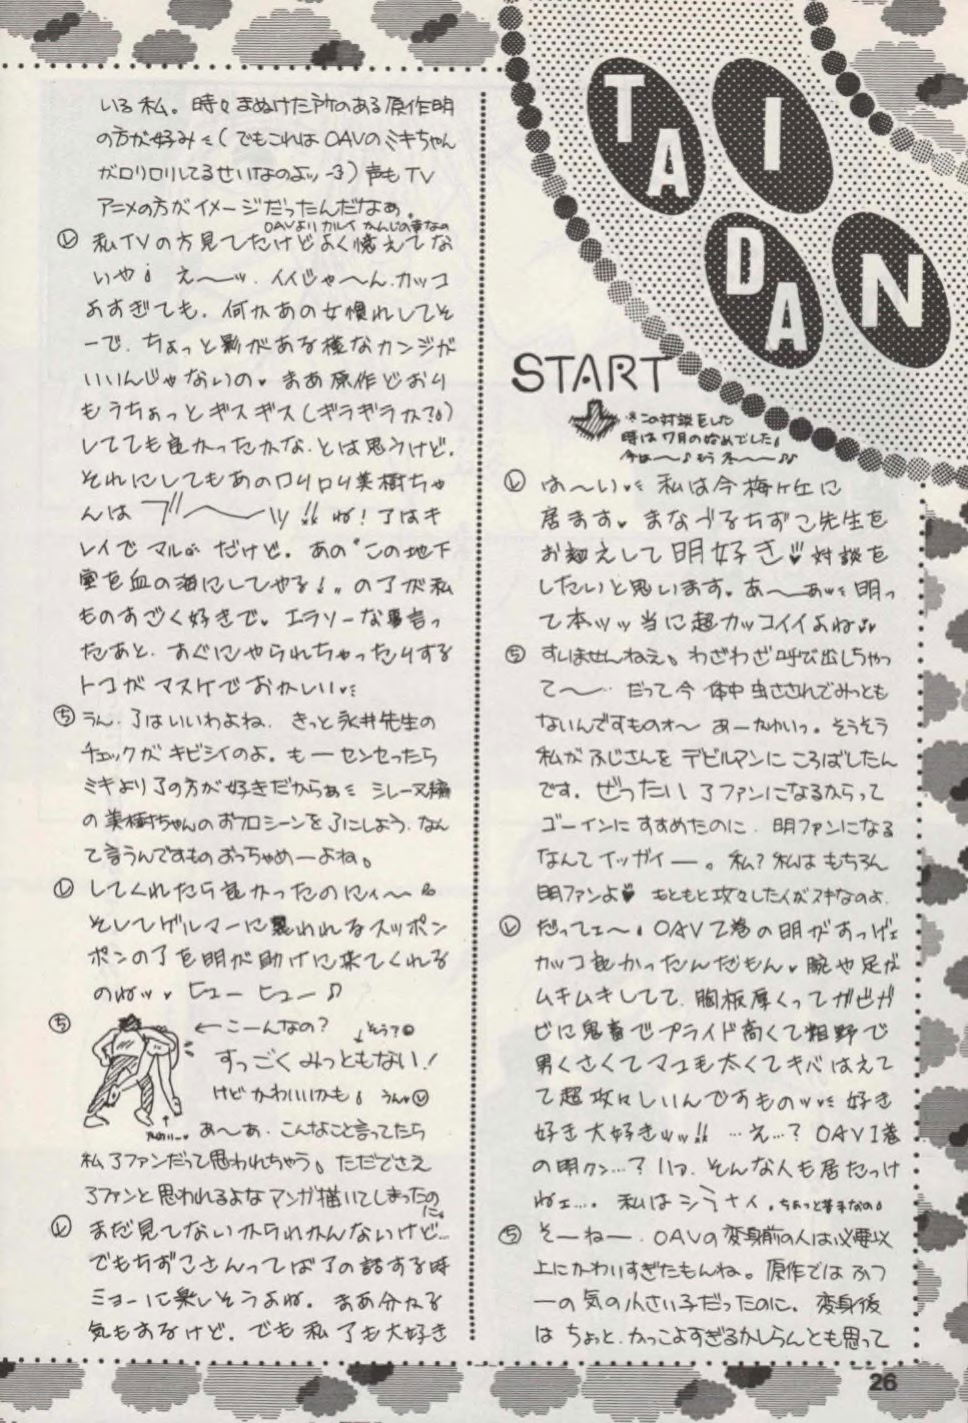 TAIDAN
START
*この対談をした
時は7月の始めでした。
今は〜♪もう冬〜〜♪♪
し は〜い 私は今梅ヶ丘に
居ます まなづるちずこ先生を
お迎えして明好き♥対談を
したいと思います。あ〜あッ 明っ
て本ッッ当に超カッコイイよね
ち すいませんねえ。わざわざ呼び出しちゃっ
て〜 だって今体中虫さされでみっとも
ないんですものォ〜 あーかゆいっ。そうそう
私がふじさんをデビルマンにころばしたん
です。ぜったい了ファンになるからって
ゴーインにすすめたのに、明ファンになる
なんてイッガイー。私?私はもちろん
明ファンよ♥ もともと攻々した人がスキなのよ。
し だってェ〜 OAV2巻の明がすっげェ
カッコ良かったんだもん 腕や足が
ムキムキしてて、胸板厚くってガビガ
ビに鬼畜でプライド高くて粗野で
男くさくてマユ毛太くてキバはえて
て超攻々しいんですものッ 好き
好き大好きッッ!! …え…?OAV1巻
の明クン…? そんな人も居たっけ
ねェ…。私はシラナイ。ちょっと苦手なの
ち そーねー、OAVの変身前の人は必要以
上にかわいすぎたもんね。原作ではふつ
ーの気の小さい子だったのに。変身後
は ちょっと、かっこよすぎるかしらんとも思って
26
いる私。時々まぬけた所のある原作明
の方が好み(でもこれはOAVのミキちゃん
がロリロリしてるせいなのよッ)声もTV
アニメの方がイメージだったんだなあ。
OAVよりカルイかんじの声なの
し 私TVの方見てたけどよく憶えてな
いや え〜ッ、イイじゃ〜ん、カッコ
よすぎても。何かあの女慣れしてそ
ーで、ちょっと影がある様なカンジが
いいんじゃないの まあ原作どおり
もうちょっとギスギス(ギラギラか?)
してても良かったかな、とは思うけど。
それにしてもあのロリロリ美樹ちゃ
んはブ〜〜ッ!! ね!了はキ
レイでマル だけど。あの"この地下
室を血の海にしてやる!"の了が私
ものすごく好きで。エラソーな事言っ
たあと、すぐにやられちゃったりする
トコがマヌケでおかしい
ち うん。了はいいわよね。きっと永井先生の
チェックがキビシイのよ。もーセンセったら
ミキより了の方が好きだからぁ シレーヌ編
の美樹ちゃんのおフロシーンを了にしよう、なん
て言うんですものおっちゃめーよね。
し してくれたら良かったのにィ〜
そしてゲルマーに襲われるスッポン
ポンの了を明が助けに来てくれる
のねッ ヒューヒュー♪
ち ←こーんなの? そう?
すっごくみっともない!
けどかわいいかも うん
あ〜あ、こんなこと言ってたら
私了ファンだって思われちゃう。ただでさえ
了ファンと思われるよなマンガ描いてしまったの
に。
し まだ見てないからわかんないけど…
でもちずこさんってば了の話する時
ミョーに楽しそうよね。まあ分かる
気もするけど。でも私了も大好き